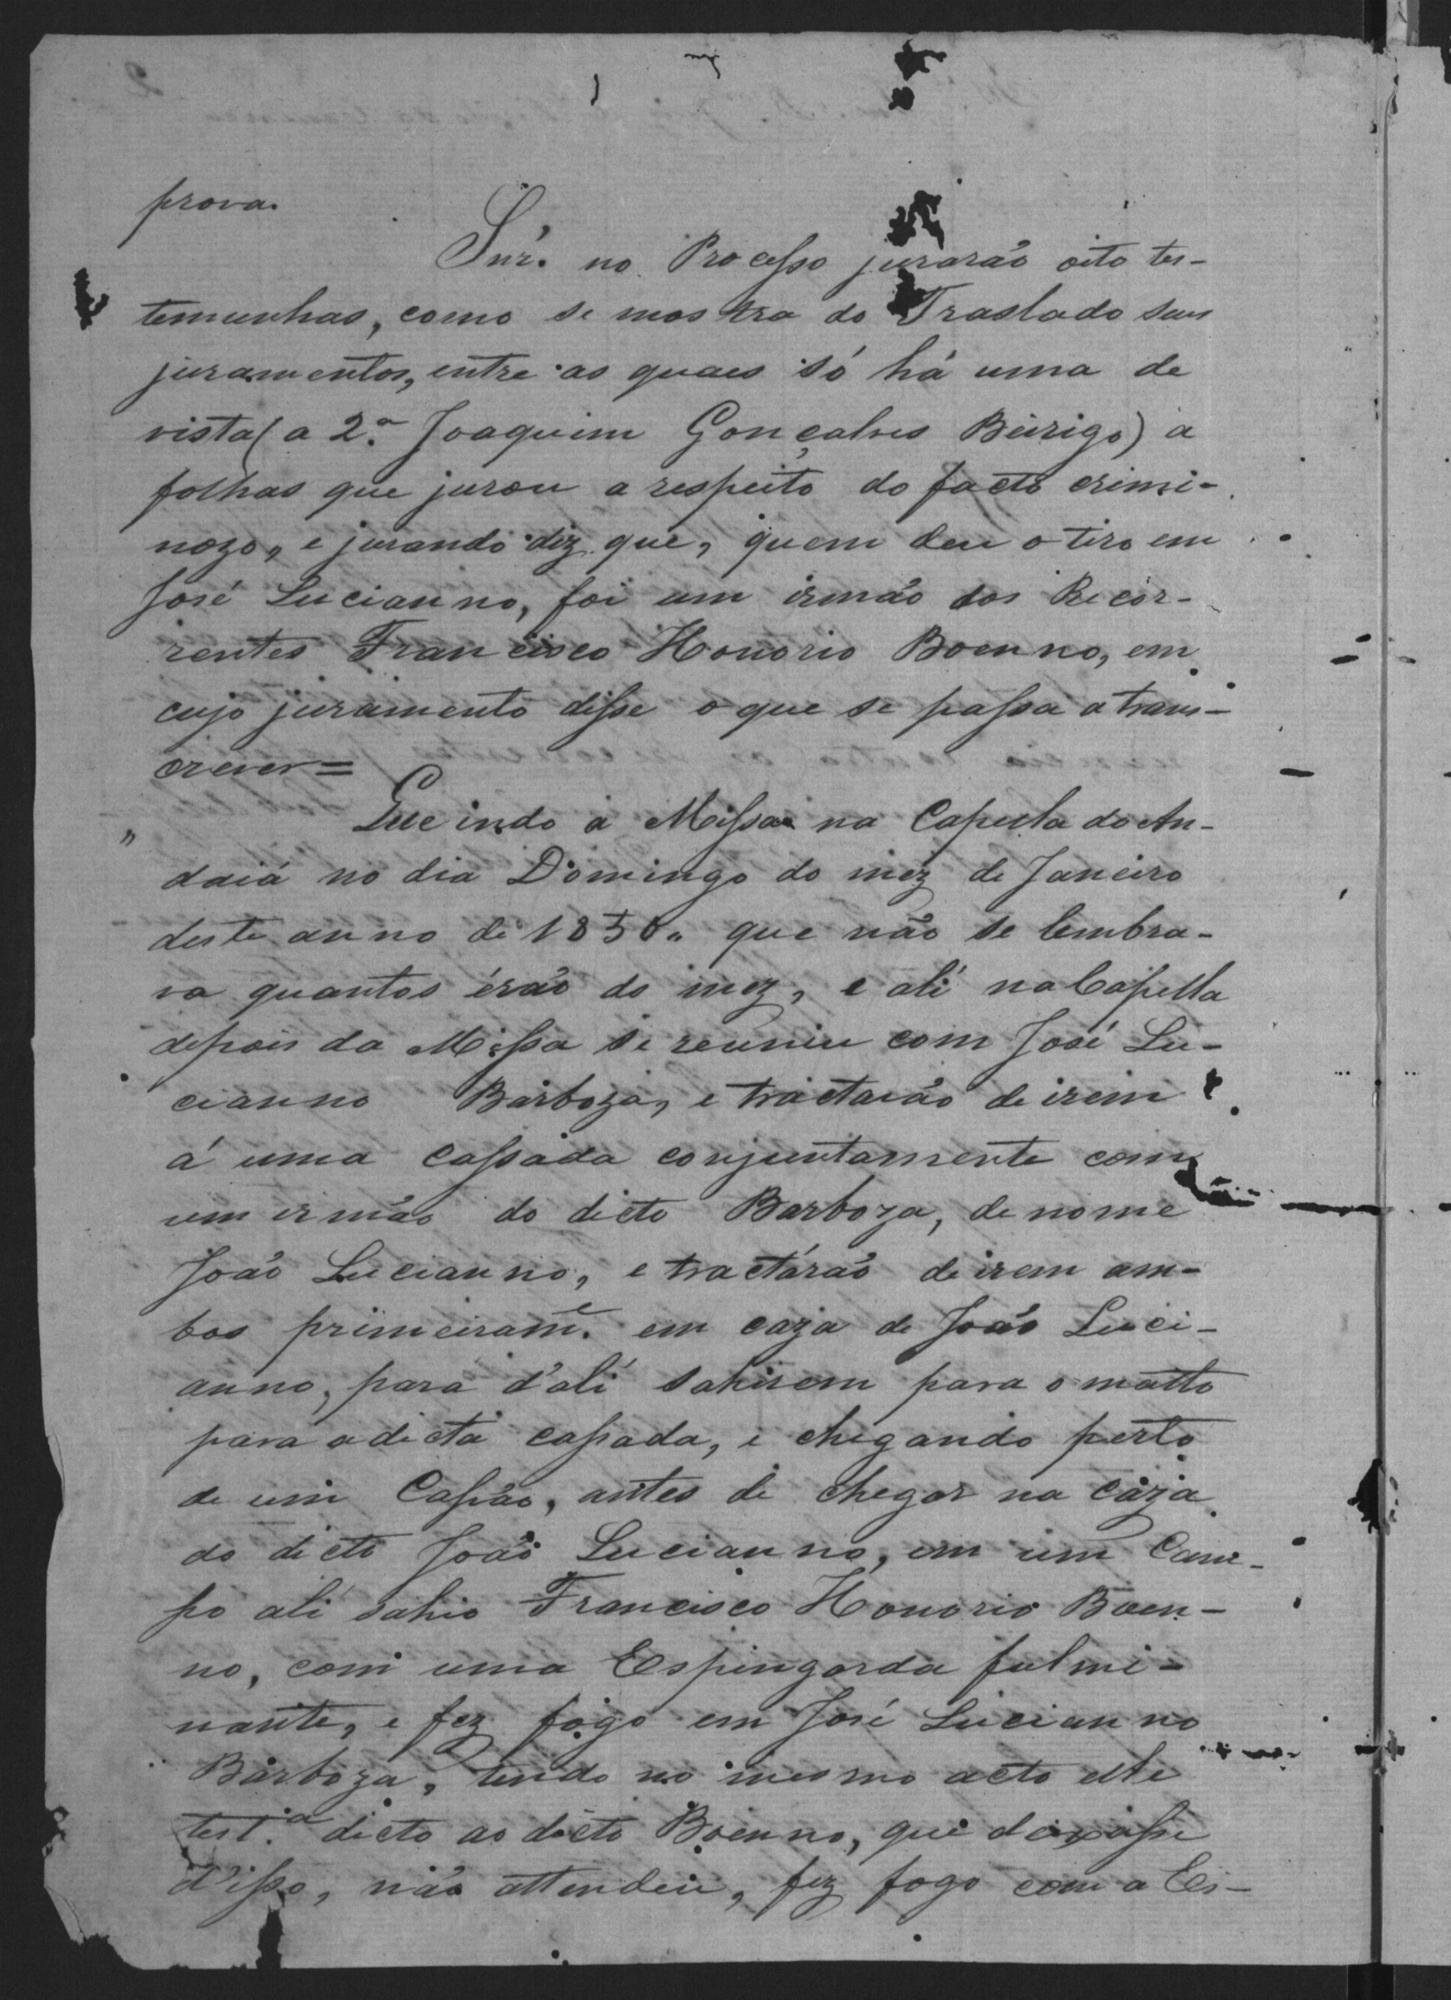 prova.
Snr. no Processo jurarão oito tes-
temunhas, como se mostra do Traslado seus
juramentos, entre as quaes só há uma de
vista (a 2.ª Joaquim Gonçalves Búrigo) a
folhas que jurou a respeito do facto crimi-
nozo, e jurando diz que, quem deu o tiro em
José Lucianno, foi um irmão dos Recor-
rentes Francisco Honorio Boenno, em
cujo juramento disse o que se passa a trans-
crever=
" Que indo á Missa na Capella do An-
daiá no dia Domingo do mez de Janeiro
deste anno de 1850„ que não se lembra-
va quantos érão do mez, e alí na Capella
depois da Missa se reuniu com José Lu-
cianno Barboza, e tractarão de irem
á uma cassada conjuntamente com
um irmão do dicto Barboza, de nome
João Lucianno, e tractárão de irem am-
bos primeiram.e em caza de João Luci-
anno, para d'alí sahirem para o matto
para a dicta cassada, e chegando perto
de um Capão, antes de chegar na caza
do dicto João Lucianno, em um Cam-
po alí sahio Francisco Honorio Boen-
no, com uma Espingarda fulmi-
nante, e fez fogo em José Lucianno
Barboza, tendo no mesmo acto elle
test.ª dicto ao dicto Boenno, que deixasse
d'isso, não attendeu, fez fogo com a Es-